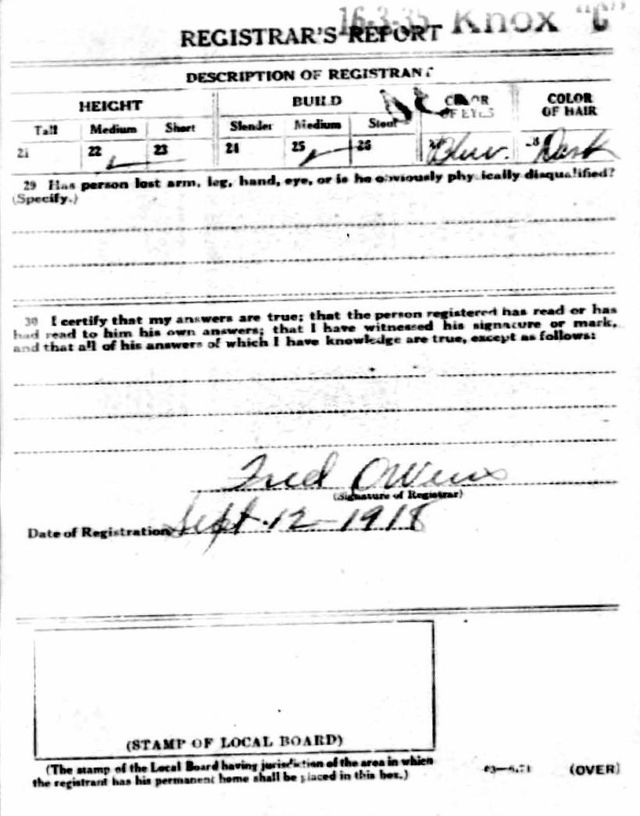 16-3-35 Knox "C"
REGISTRAR'S REPORT
DESCRIPTION OF REGISTRANT
HEIGHT BUILD COLOR OF EYES COLOR OF HAIR
Tall Medium Short Slender Medium Stout
21 22 23 24 25 26 Blue. Dark
29 Has person lost arm, leg, hand, eye, or is he obviously physically disqualified?
(Specify.)
30 I certify that my answers are true; that the person registered has read or has
had read to him his own answers; that I have witnessed his signature or mark,
and that all of his answers of which I have knowledge are true, except as follows:
Fred Owens
(Signature of Registrar)
Date of Registration Sept-12-1918
(STAMP OF LOCAL BOARD)
(The stamp of the Local Board having jurisdiction of the area in which
the registrant has his permanent home shall be placed in this box.)
(OVER)